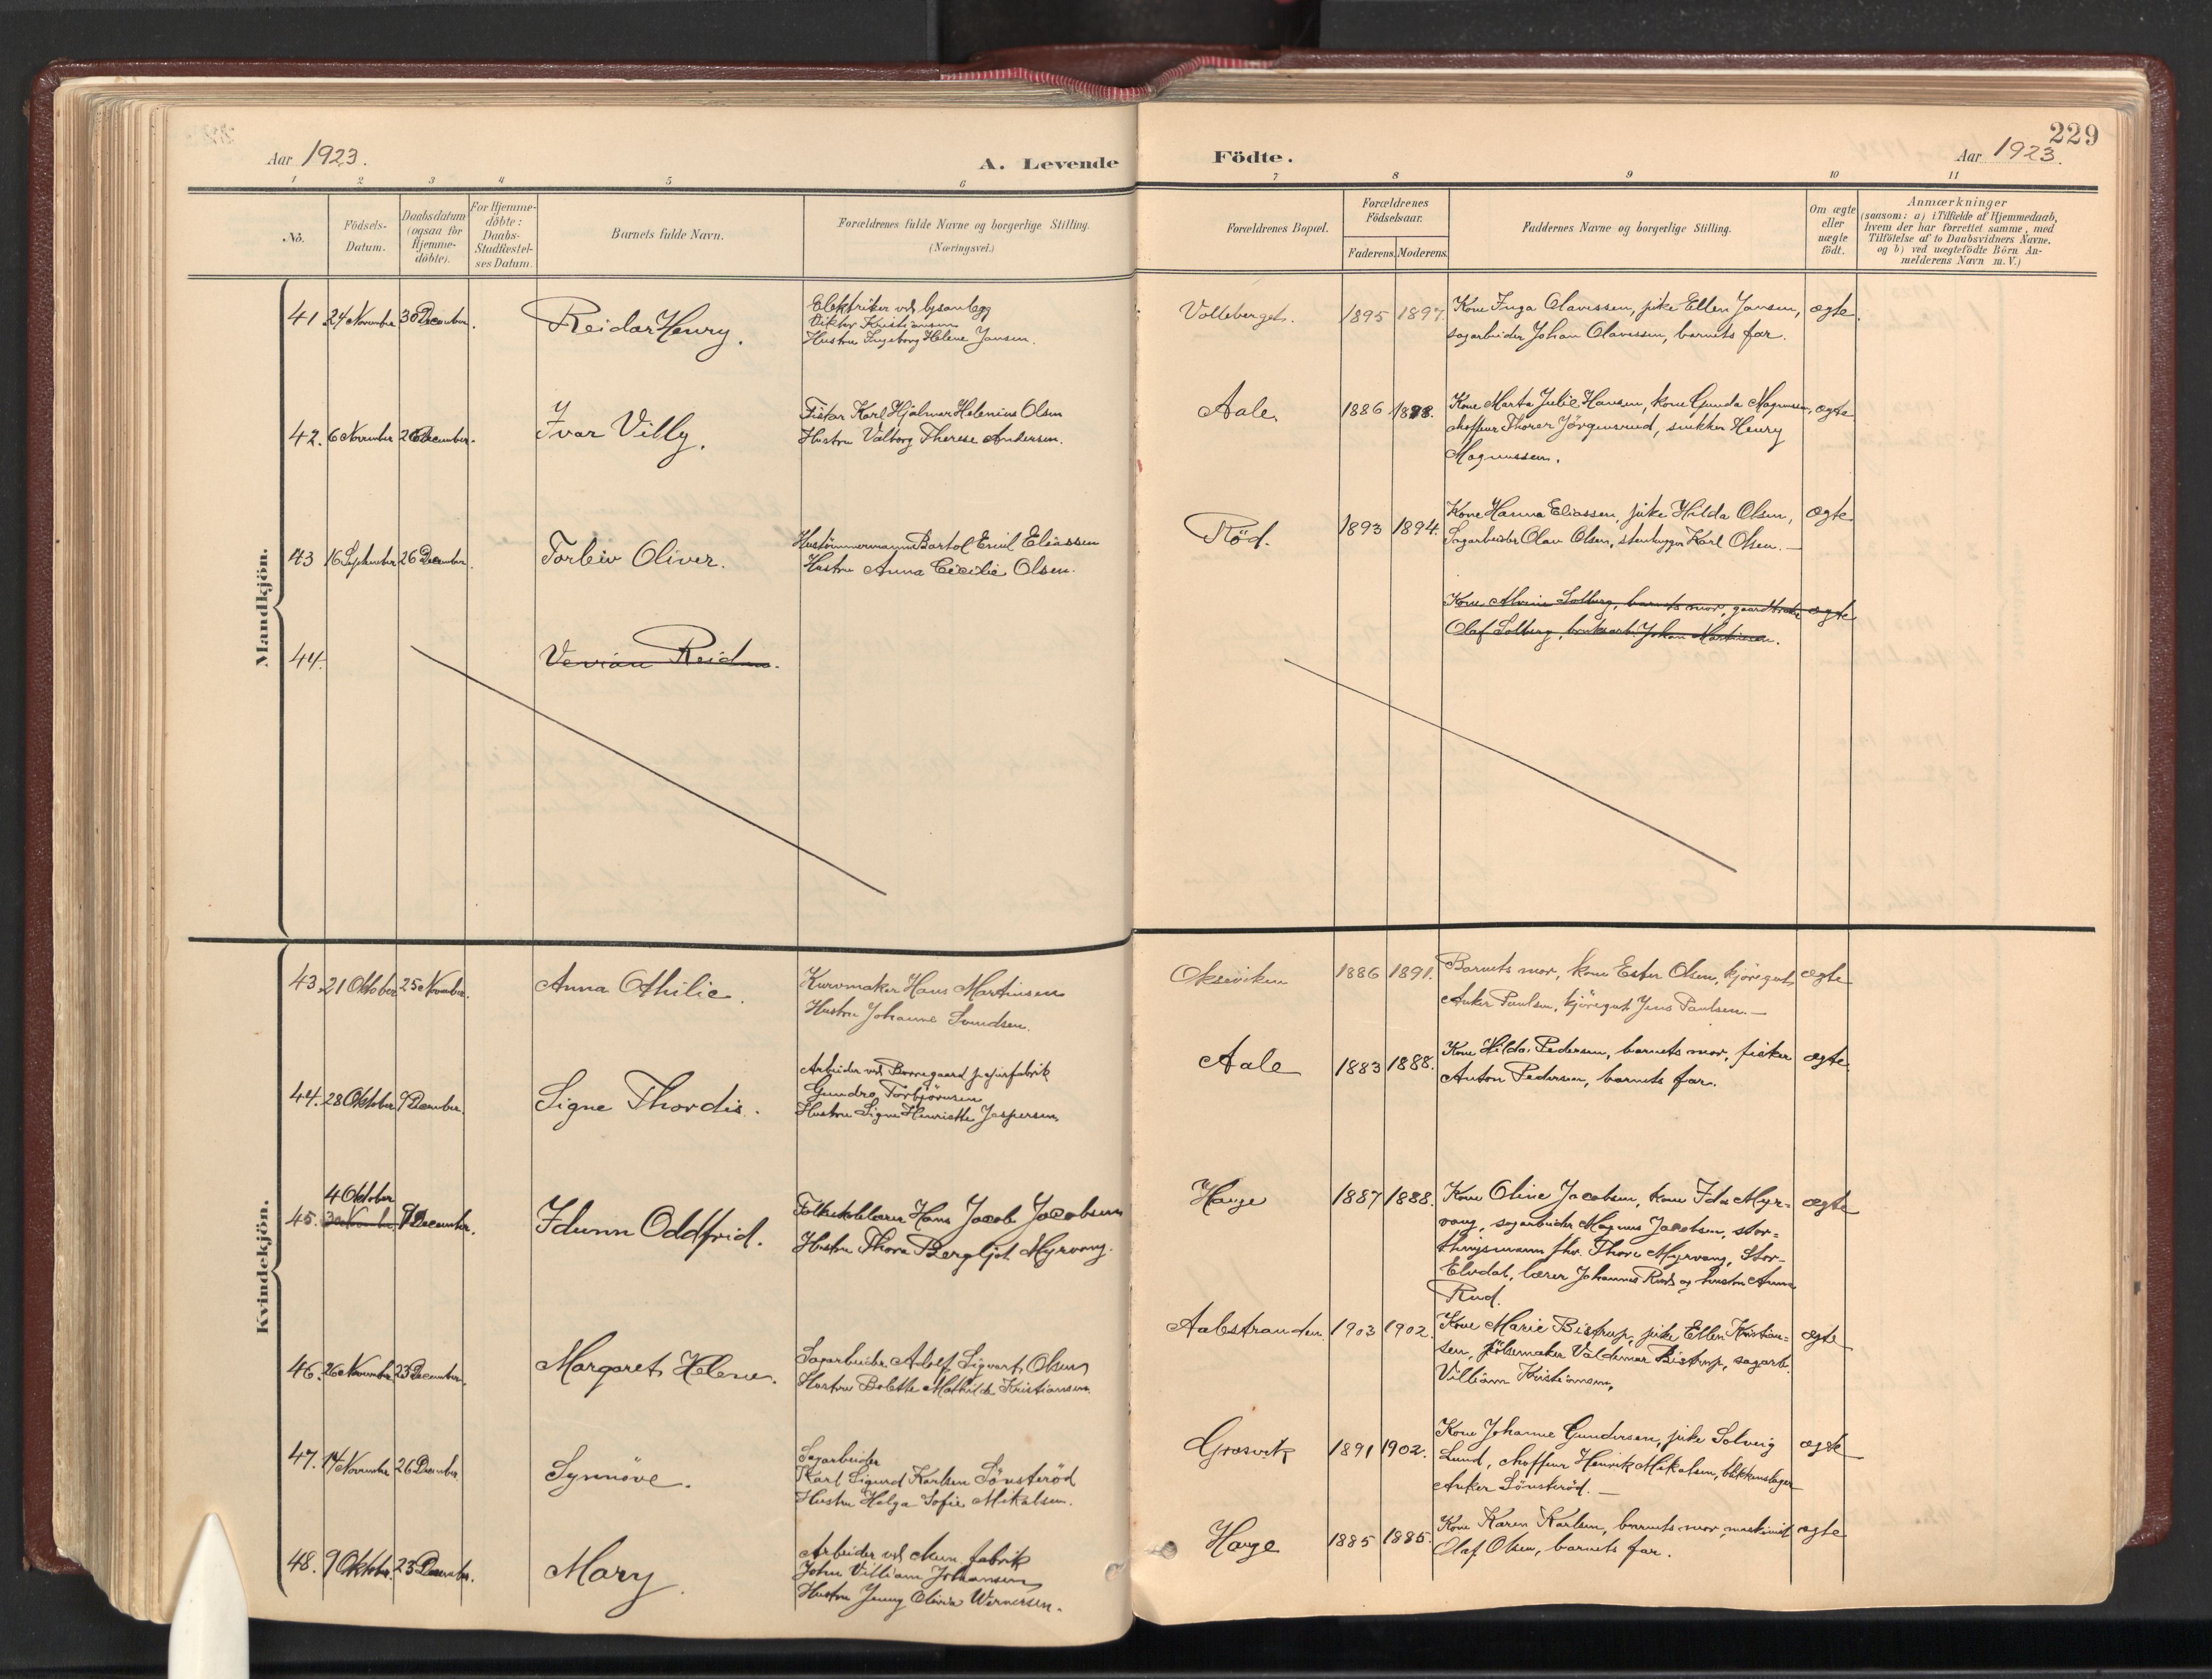 Aar 1923.
A. Levende Födte.
229
Aar 1923.
1 2 3 4 5 6 7 8 9 10 11
No.
Födsels-
Datum.
Daabsdatum
(ogsaa for
Hjemme-
döbte).
For Hjemme-
döbte:
Daabs-
Stadfæstel-
ses Datum.
Barnets fulde Navn.
Forældrenes fulde Navne og borgerlige Stilling.
(Næringsvei.)
Forældrenes Bopæl.
Forældrenes
Födselsaar.
Faderens. Moderens.
Faddernes Navne og borgerlige Stilling.
Om ægte
eller
uægte
födt.
Anmærkninger
(saasom: a) i Tilfælde af Hjemmedaab,
hvem der har forrettet samme, med
Tilföielse af to Daabsvidners Navne.
og b) ved uægtefödte Börn An-
melderens Navn m. V.)
Mandkjön.
41. 24 November 30 December. Reidar Henry.
Elektriker ved lysanlegg
Viktor Kristiansen
Hustru Ingeborg Helene Jansen.
Volleberget. 1895 1897.
Kone Inga Olavessen, pike Ellen Jansen,
sagarbeider Johan Olavessen, barnets far.
ægte.
42. 6 November 26 December. Ivar Villy.
Fisker Karl Hjalmar Helenius Olsen
Hustru Valborg Therese Andersen.
Aale. 1886 1888.
Kone Marta Julie Hansen, kone Gunda Magnussen,
chaffeur Thorer Jörgensrud, snekker Henry
Magnussen.
ægte.
43 16 September 26 December. Torleiv Oliver.
Hustömmermann Bartol Emil Eliassen
Hustru Anna Cecilie Olsen.
Röd. 1893 1894.
Kone Hanna Eliassen, pike Hilda Olsen,
Sagarbeider Olav Olsen, stenhugger Karl Olsen.
ægte.
44. Verian Reidar.
Kone Alvine Solberg, barnets mor, gaardbruker
Olaf Solberg, bruksarb. Johan Martinsen.
ægte
Kvindekjön.
43. 21 Oktober 25 November. Anna Othilie.
Kurvmaker Hans Martinsen
Hustru Johanne Svendsen.
Okseviken 1886 1891.
Barnets mor, kone Ester Olsen, kjöregut
Anker Paulsen, kjöregut Jens Paulsen.
ægte
44. 28 Oktober 9 December. Signe Thordis.
Arbeider ved Borregaard papirfabrik
Gundro Torbjörnsen
Hustru Signe Henriette Jespersen.
Aale 1883 1888.
Kone Hilda Pedersen, barnets mor, fisker
Anton Pedersen, barnets far.
ægte.
45. 4 Oktober
30 November 9 December. Idunn Oddfrid.
Folkeskolelærer Hans Jacob Jacobsen
Hustru Thora Bergljot Myrvang.
Hauge 1887 1888.
Kone Oline Jacobsen, kone Ida Myr-
vang, sagarbeider Magnus Jacobsen, stor-
thingsmann fhv. Thore Myrvang, Stor-
Elvdal, lærer Johannes Rud og hustru Anna
Rud.
ægte
46. 26 November 23 December. Margaret Helene.
Sagarbeider Adolf Sigvart Olsen
Hustru Bolette Mathilde Kristiansen.
Aalestranden. 1903 1902.
Kone Marie Bistrup, pike Ellen Kristian-
sen, pölsemaker Valdemar Bistrup, sagarb.
Villiam Kristiansen.
ægte
47. 14 November 26 December. Synnöve.
Sagarbeider
Karl Sigurd Karlsen Sönsteröd
Hustru Helga Sofie Mikalsen.
Græsvik 1891 1902.
Kone Johanne Gundersen, pike Solveig
Lund, chaffeur Henrik Mikalsen, blikkenslager
Anker Sönsteröd.
ægte
48. 9 Oktober. 23 December. Mary.
Arbeider ved kem. fabrik
John Villiam Johansen
Hustru Jenny Olivia Wernersen.
Hauge 1885 1885.
Kone Karen Karlsen, barnets mor, maskinist
Olaf Olsen, barnets far.
ægte